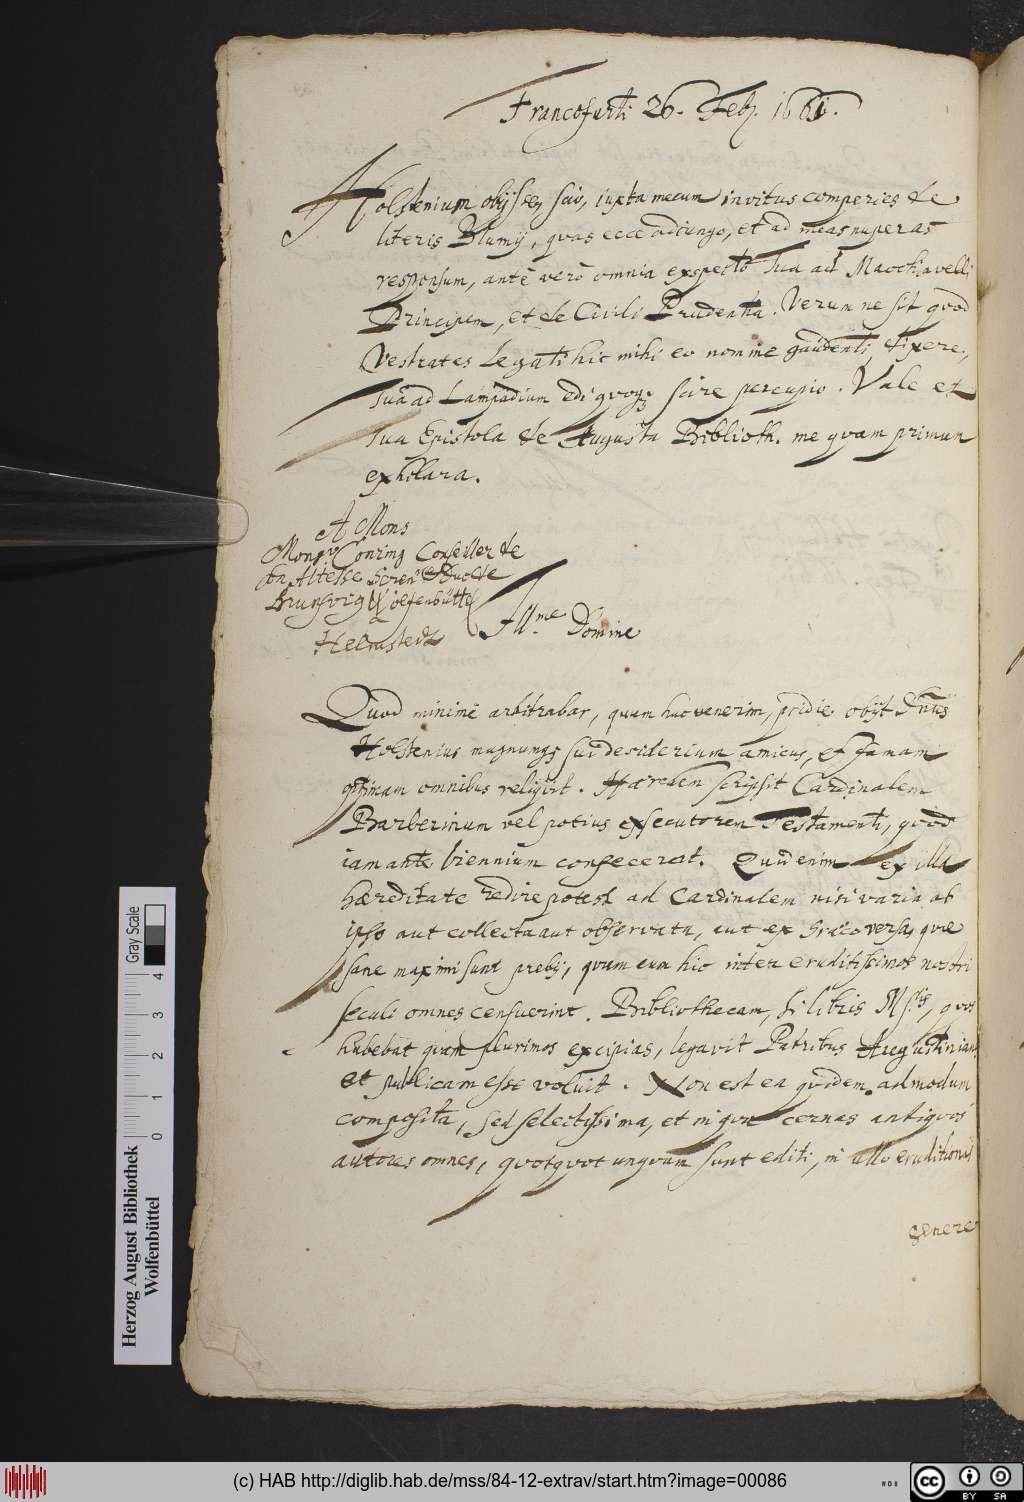 Francofurti 26. Feb. 1661.
Holstenium obijsse, scio, iuxta mecum invitus comperies de
literis Blumij, quas ecce adiungo, et ad meas nuperas
responsum, ante verò omnia expecto tua ad Macchiavelli
Principem, et de Civili Prudentia. Verum ne sit quod
Vestrates Legati hic mihi eo nomine gaudenti, dixere,
tua ad Lampadium edi quoq; scire percupio. Vale et
tua Epistola de Augusta Biblioth. me quam primum
exhilara.
A Mons
Monsr Conring Conseiller de
son Altesse Seren. Duc de
Brunsvig Wolfenbüttel
Helmstedt
Illme Domine
Quod minimè arbitrabar, quum huc venerim, pridie obijt Dnus
Holstenius magnum sui desiderium amicus, et famam
optimam omnibus reliquit. Hæredem scripsit Cardinalem
Barberinum vel potius exsecutorem Testamenti, quod
iam ante biennium confecerat. Quid enim ex illa
hæreditate redire potest ad Cardinalem nisi varia ab
ipso aut collecta aut observata, aut ex Græco versa, quæ
sane maximi sunt pretij, quum eum hic inter eruditissimos nostri
seculi omnes censuerint. Bibliothecam, si libris Msstis, quos
habebat quam plurimos excipias, legavit Patribus Augustinianis
et publicam esse voluit. Non est ea quidem admodum
composita, sed selectissima, et in qua cernas antiquos
autores omnes, quotquot unquam sunt editi, in ullo eruditionis
genere
Herzog August Bibliothek
Wolfenbüttel
0 1 2 3 4
Gray Scale
(c) HAB http://diglib.hab.de/mss/84-12-extrav/start.htm?image=00086
cc BY SA